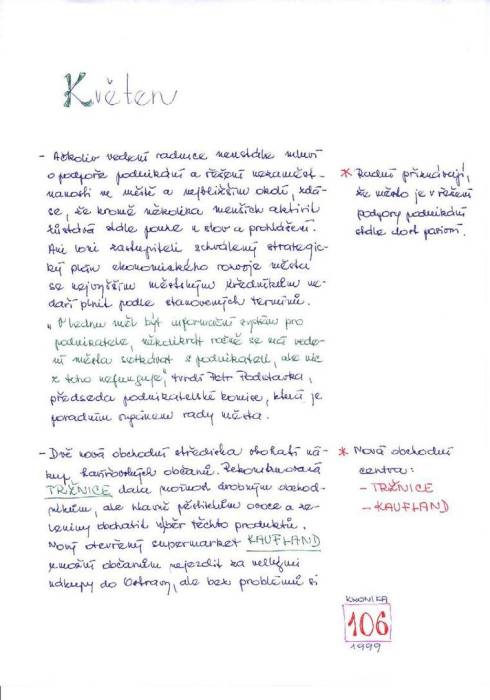 Květen
- Ačkoliv vedení radnice neustále mluví
o podpoře podnikání a řešení nezaměst-
nanosti ve městě a nejbližším okolí, zdá
se, že kromě několika menších aktivit
zůstává stále pouze u slov a prohlášení.
Ani loni zastupiteli schválený strategic-
ký plán ekonomického rozvoje města
se nejvyšším městským úředníkům ne-
daří plnit podle stanovených termínů.
„V lednu měl být informační systém pro
podnikatele, několikrát ročně se má vede-
ní města setkávat s podnikateli, ale nic
z toho nefunguje," tvrdí Petr Podstavka,
předseda podnikatelské komise, která je
poradním orgánem rady města.
* Radní přiznávají,
že město je v řešení
podpory podnikání
stále dost pasivní.
- Dvě nová obchodní střediska obohatí ná-
kup havířovských občanů. Rekonstruovaná
TRŽNICE dala možnost drobným obchod-
níkům, ale hlavně pěstitelům ovoce a ze-
leniny obohatit výběr těchto produktů.
Nový otevřený supermarket KAUFLAND
umožní občanům nejezdit za velkými
nákupy do Ostravy, ale bez problémů si
* Nová obchodní
centra:
- TRŽNICE
- KAUFLAND
KRONIKA
106
1999